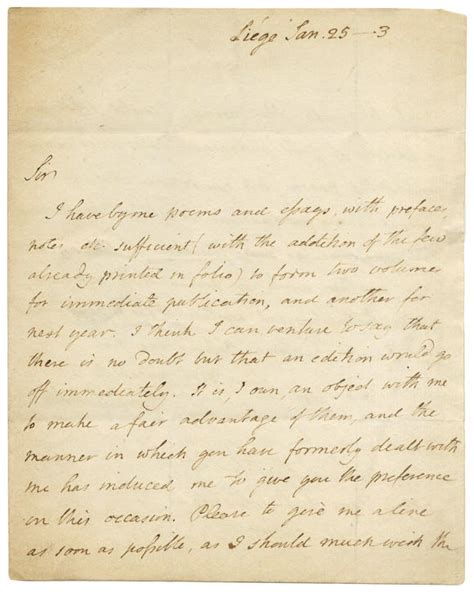 Liége Jan. 25 — 3
Sir
I have by me poems and essays, with preface,
notes &c sufficient (with the addition of the few
already printed in folio) to form two volumes
for immediate publication, and another for
next year. I think I can venture to say that
there is no doubt but that an edition would go
off immediately. It is, I own, an object with me
to make a fair advantage of them, and the
manner in which you have formerly dealt with
me has induced me to give you the preference
on this occasion. Please to give me a line
as soon as possible, as I should much wish the